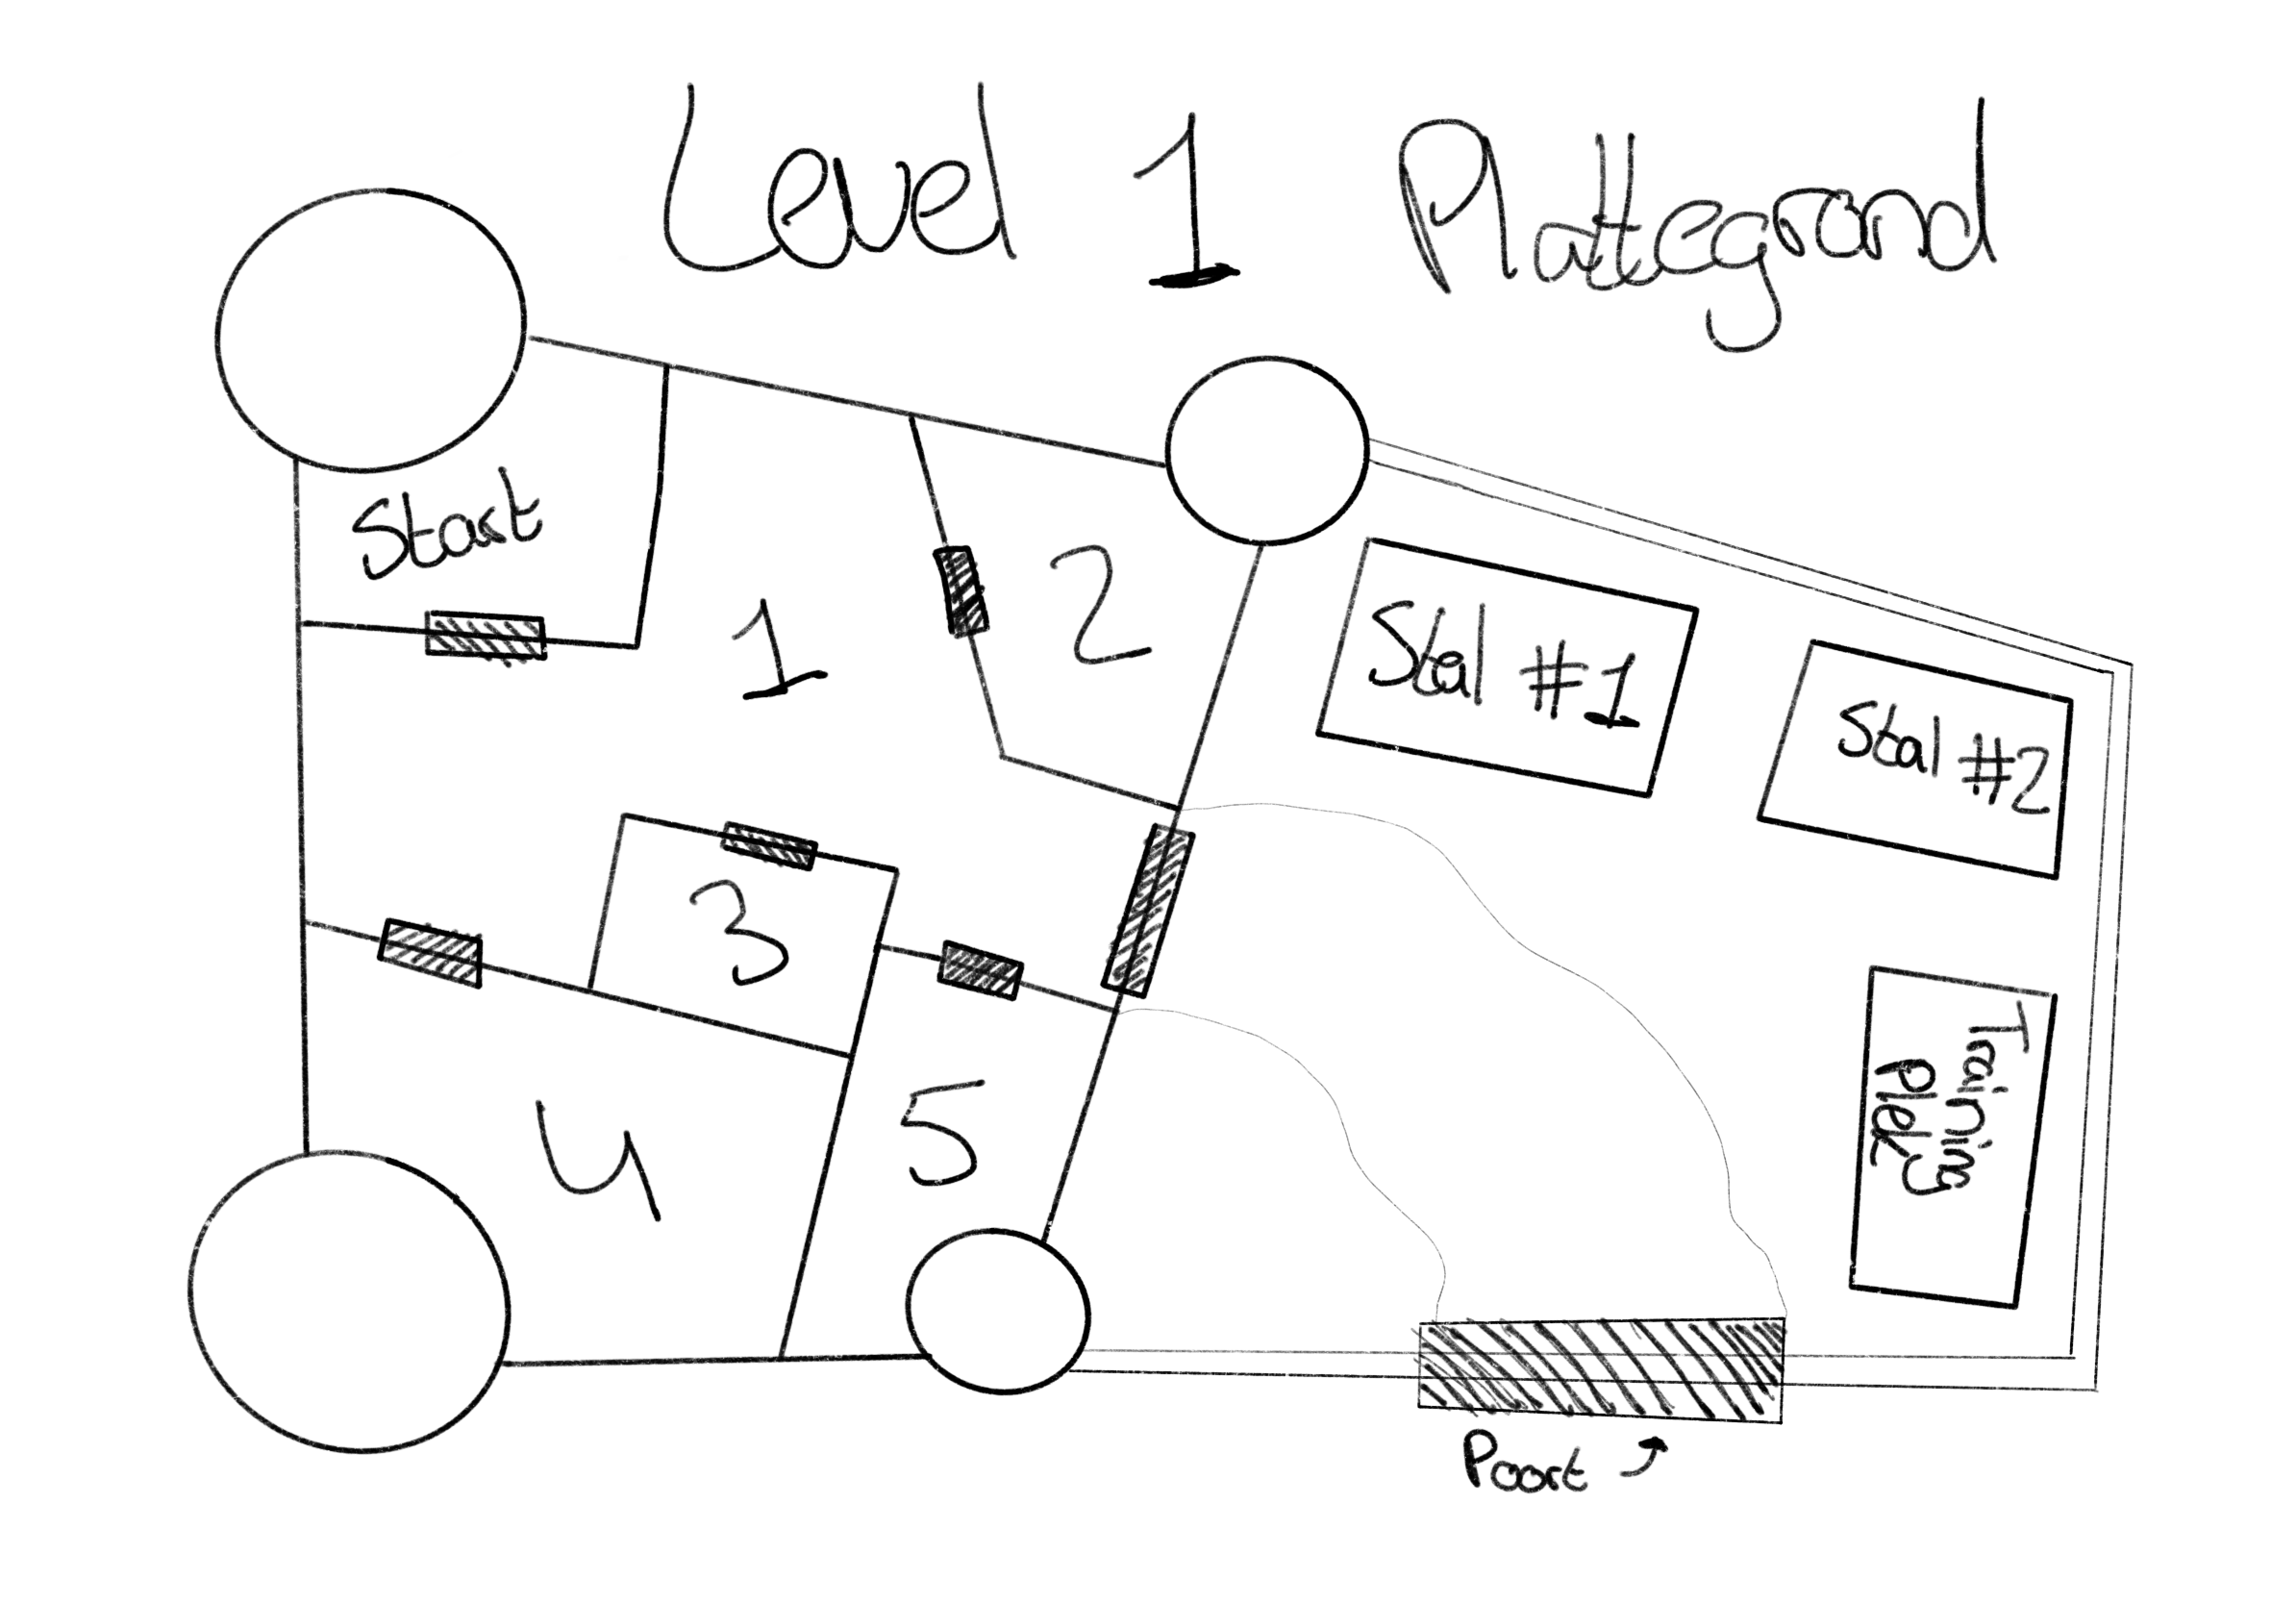 Level 1 Plattegrond
Start
1
2
Stal #1
Stal #2
3
4
5
Training
Plek
Poort